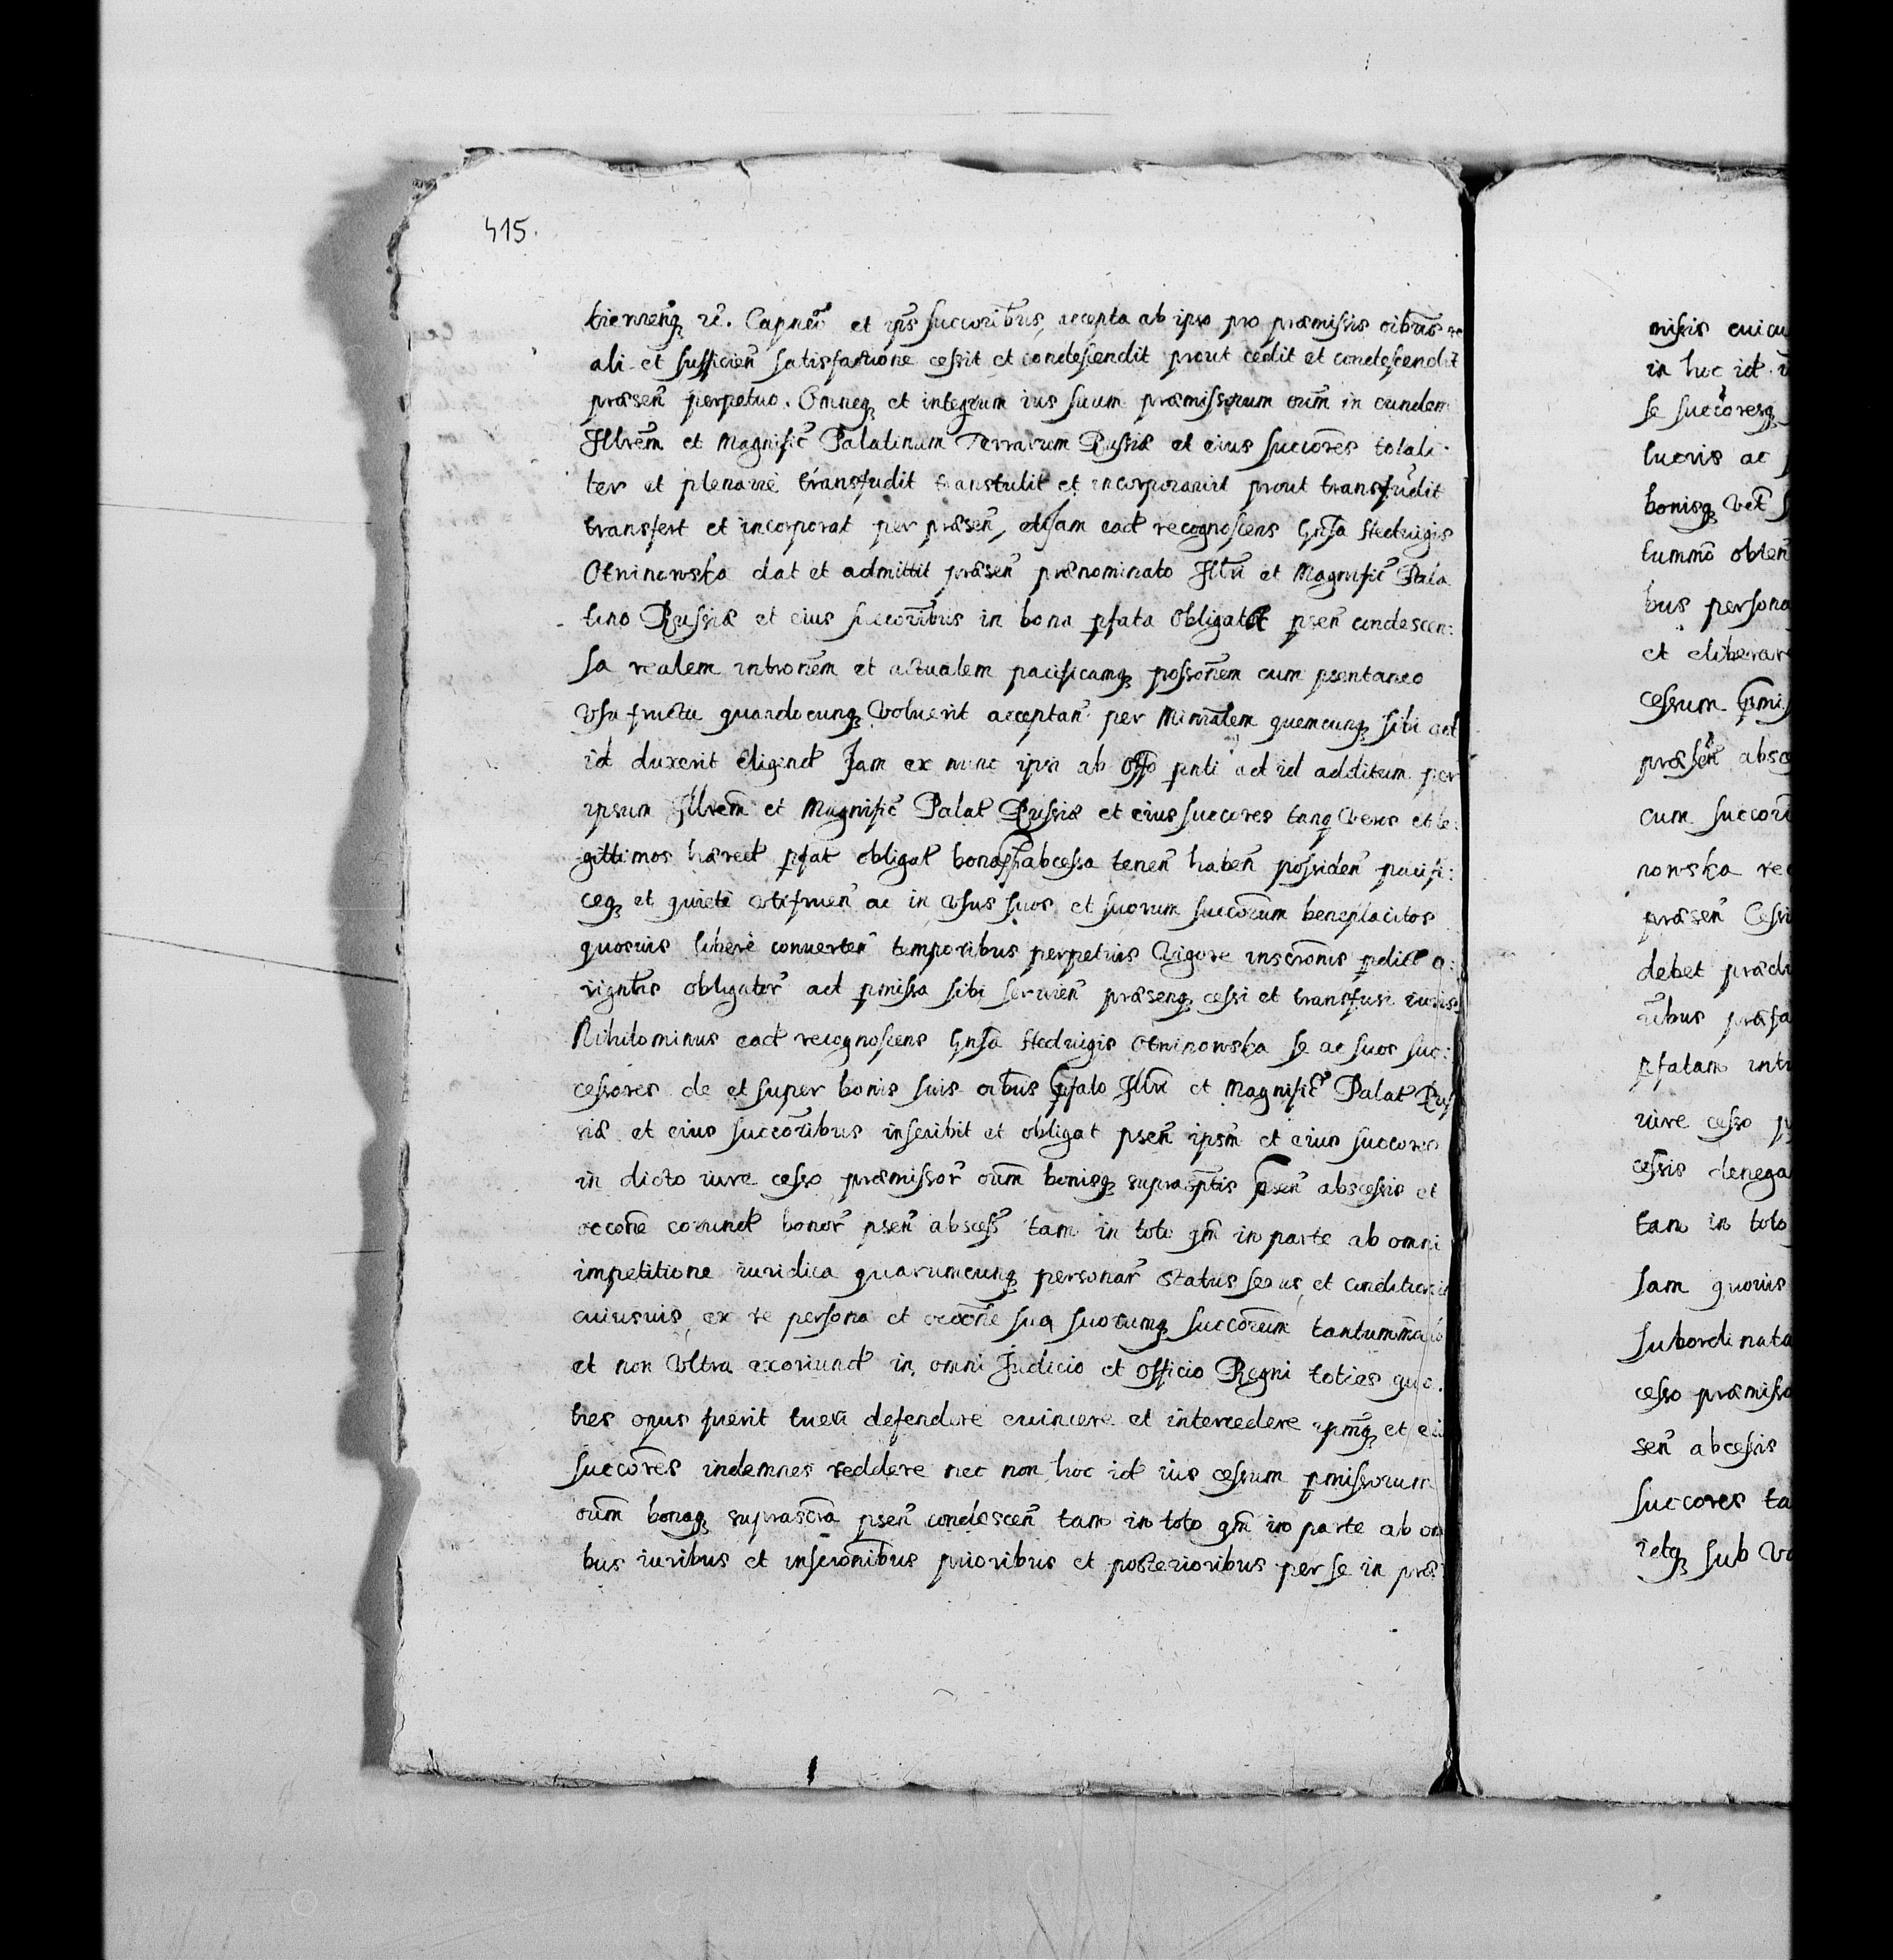 415.
ali et sufficien̄ satisfactione cessit et condescendit prout cedit et condescendit
præsen̄ perpetuo. Omneq₃ et integrum ius suum præmissorum oīm in eundem
Illrēm et Magnific̄ Palatinum Terrarum Russiæ et eius succōres totali
ter et plenarie transfudit transtulit et incorporavit prout transfudit
transfert et incorporat per præsen̄, etiam ead recognoscens Gn̄sa Hedvigis
Otninowska dat et admittit præsen̄ prænominato Illrī et Magnific̄ Pala
tino Russiæ et eius succōribus in bona pfata obligat psen̄ condescen:
sa realem intronēm et actualem pacificamq₃ possonēm cum psentaneo
Usu fructu quandocunq₃ Voluerit acceptan̄ per Minrālem quemcunq₃ sibi ad
id duxerit eligend Jam ex nunc ipsi ab Offo pnti ad id additum per
ipsum Illrēm et Magnific̄ Palat Russiæ et eius succores tanq₃ Veros et le:
gittimos hæred pfat obligat bona abcessa tenen̄ haben̄ possiden̄ pacifi:
ceq₃ et quiete utifruen̄ ac in Usus suos et suorum succorum beneplacitos
quosvis libere converten̄ temporibus perpetuis Vigore inscronis pdict o:
rigntis obligator̄ ad pmissa sibi servien̄ præsenq₃ cessi et transfusi iuris
Nihilominus ead recognoscens Gn̄sa Hedvigis Otninowska se ac suos suc:
cessores de et super bonis suis oībus pfato Illrī et Magnific̄ Palat Rus
siæ et eius succōribus inscribit et obligat psen̄ ipsm̄ et eius succores
in dicto iure cesso præmissor̄ oīm bonisq₃ suprascptis psen̄ abscessis et
occōne eorund bonor̄ psen̄ abscess̄ tam in toto qm̄ in parte ab omni
impetitione iuridica quarumcunq₃ personar̄ status sexus et conditionis
cuiusvis, ex re persona et occōne sua suorumq₃ succōrum tantummodo
et non Ultra exoriund in omni Judicio et Officio Regni toties quo
ties opus fuerit tueri defendere evincere et intercedere ipmq₃ et eius
succōres indemnes reddere nec non hoc id ius cessum pmissorum
oīm bonaq₃ suprascra psen̄ condescen̄ tam in toto qm̄ in parte ab om
bus iuribus et inscronibus prioribus et posterioribus per se in præ
missis cuicu
in hoc id
se succoresq₃
lucris ac
bonisq₃ vet
tummo obten̄
bus persona
et eliberare
cessum pmis
præsen̄ absc
cum succor
nowska rec
præsen̄ Cessi
debet prædi
ribus præfa
pfatam intr
iure cesso p
cessis denega
tam in toto
Jam quovis
Subordinata
cesso præmisso
sen̄ abcessis
succores ta
ietq₃ sub Va